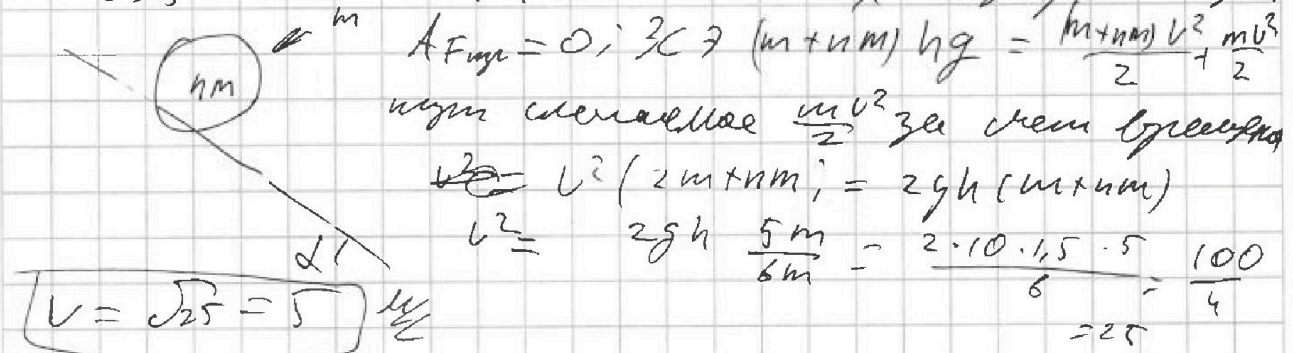 m
nm
A Fтр = 0; ЗСЭ (m+nm) hg = (m+nm) v²/2 + mv²/2
слагаемое mv²/2 за счет
v² (2m+nm) = 2gh (m+nm)
v² = 2gh 5m/6m = 2·10·1,5·5/6 = 100/4
= 25
α
V = √25 = 5 м/с